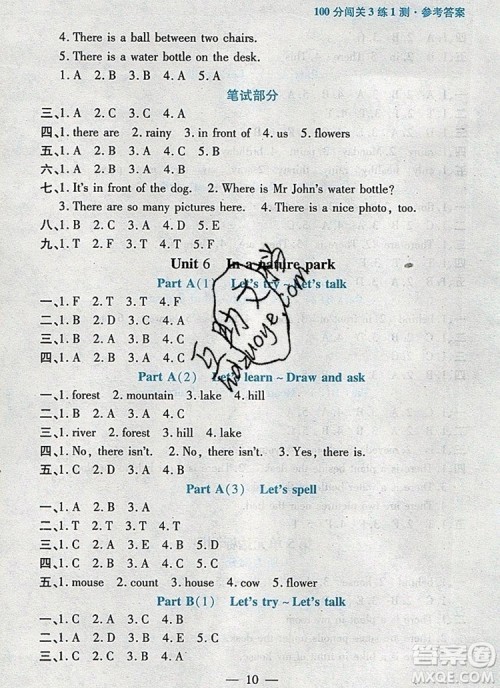 100分闯关3练1测·参考答案
4. There is a ball between two chairs.
5. There is a water bottle on the desk.
二、1. C 2. A 3. B 4. A 5. A
笔试部分
三、1. B 2. C 3. C 4. A 5. C
四、1. there are 2. rainy 3. in front of 4. us 5. flowers
五、1. C 2. A 3. B 4. A 5. B
六、1. A 2. C 3. B 4. B 5. C
七、1. It's in front of the dog. 2. Where is Mr John's water bottle?
3. There are so many pictures here. 4. There is a nice photo, too.
八、1. B 2. C 3. A 4. D 5. E
九、1. F 2. T 3. T 4. F 5. T
Unit 6 In a nature park
Part A(1) Let's try~Let's talk
一、1. T 2. F 3. T 4. F
二、1. A 2. B 3. C 4. C
三、1. C 2. B 3. A
Part A(2) Let's learn~Draw and ask
一、1. forest 2. mountain 3. lake 4. hill
二、1. A 2. B 3. A 4. C
三、1. river 2. forest 3. hill 4. lake
四、1. No, there isn't. 2. No, there isn't. 3. Yes, there is.
五、1. C 2. B 3. D 4. A
Part A(3) Let's spell
一、1. A 2. A 3. B 4. B 5. A
二、1. F 2. T 3. F 4. T 5. T
三、1. A 2. B 3. B 4. A 5. C
四、1. B 2. D 3. A 4. C
五、1. mouse 2. count 3. house 4. cow 5. flower
Part B(1) Let's try~Let's talk
一、1. B 2. A 3. A
二、1. B 2. B 3. A 4. C
10
互助文学
huzuoye.com
答案圈
MXQE.COM